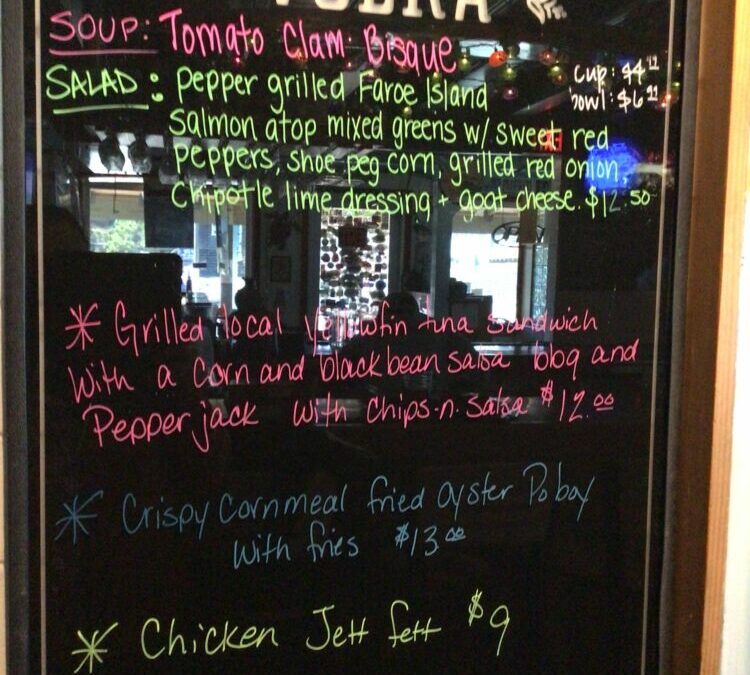 VODKA
SOUP: Tomato Clam: Bisque
SALAD: pepper grilled Faroe Island
cup: $4
bowl: $6
salmon atop mixed greens w/ sweet red
peppers, shoe peg corn, grilled red onion,
Chipotle lime dressing + goat cheese. $12.50
* Grilled local Yellowfin tuna sandwich
With a Corn and black bean salsa bbq and
Pepper jack with chips-n-salsa $12.00
* Crispy Cornmeal fried oyster Po boy
With fries $13.00
* Chicken Jett fett $9